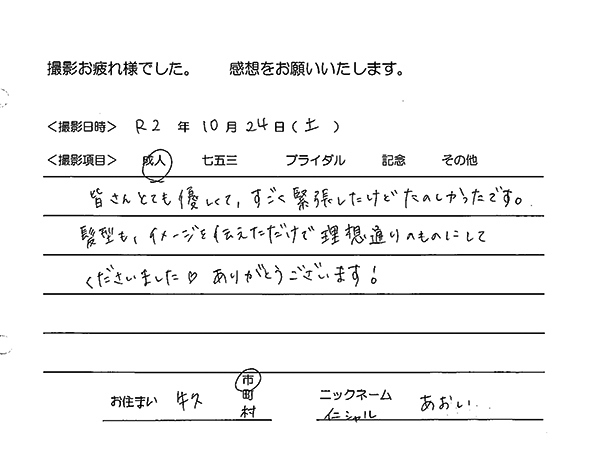 撮影お疲れ様でした。 感想をお願いいたします。
＜撮影日時＞ R2 年 10 月 24 日(土)
＜撮影項目＞ 成人 七五三 ブライダル 記念 その他
皆さんとても優しくて、すごく緊張したけどたのしかったです。
髪型も、イメージを伝えただけで理想通りのものにして
くださいました♡ ありがとうございます！
お住まい 牛久 市町村 ニックネーム イニシャル あおい